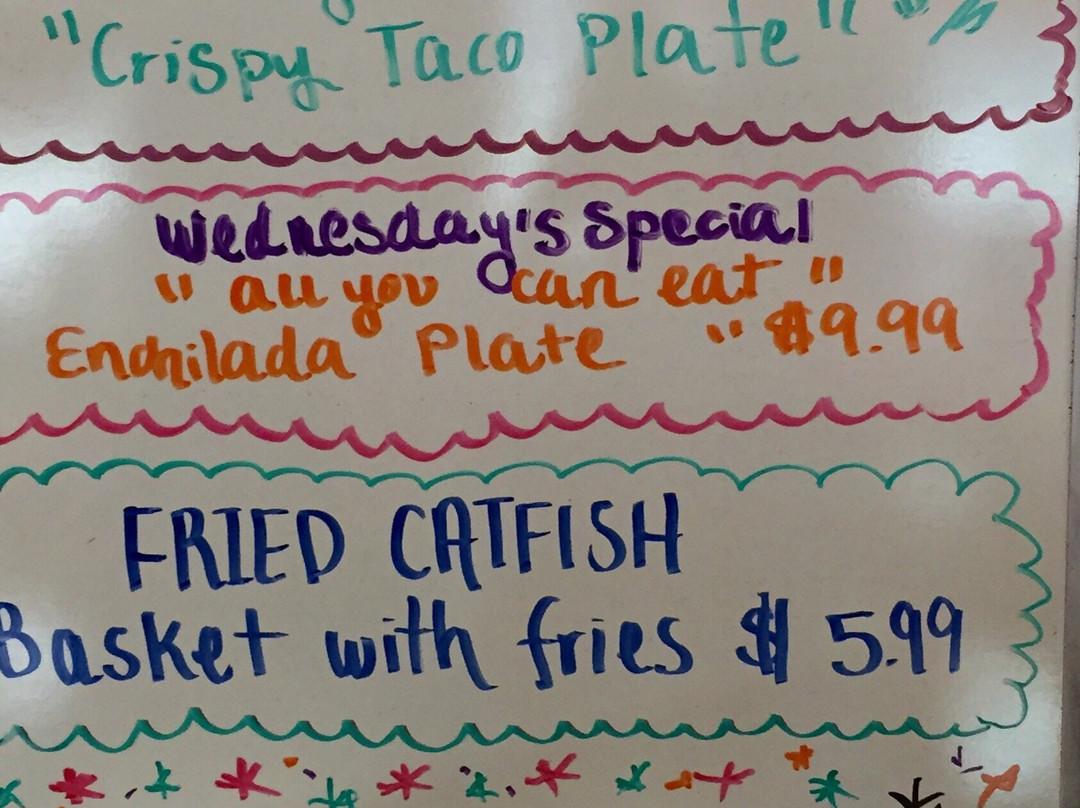 "Crispy Taco Plate"
Wednesday's Special
"all you can eat"
Enchilada Plate "$9.99
FRIED CATFISH
Basket with fries $5.99